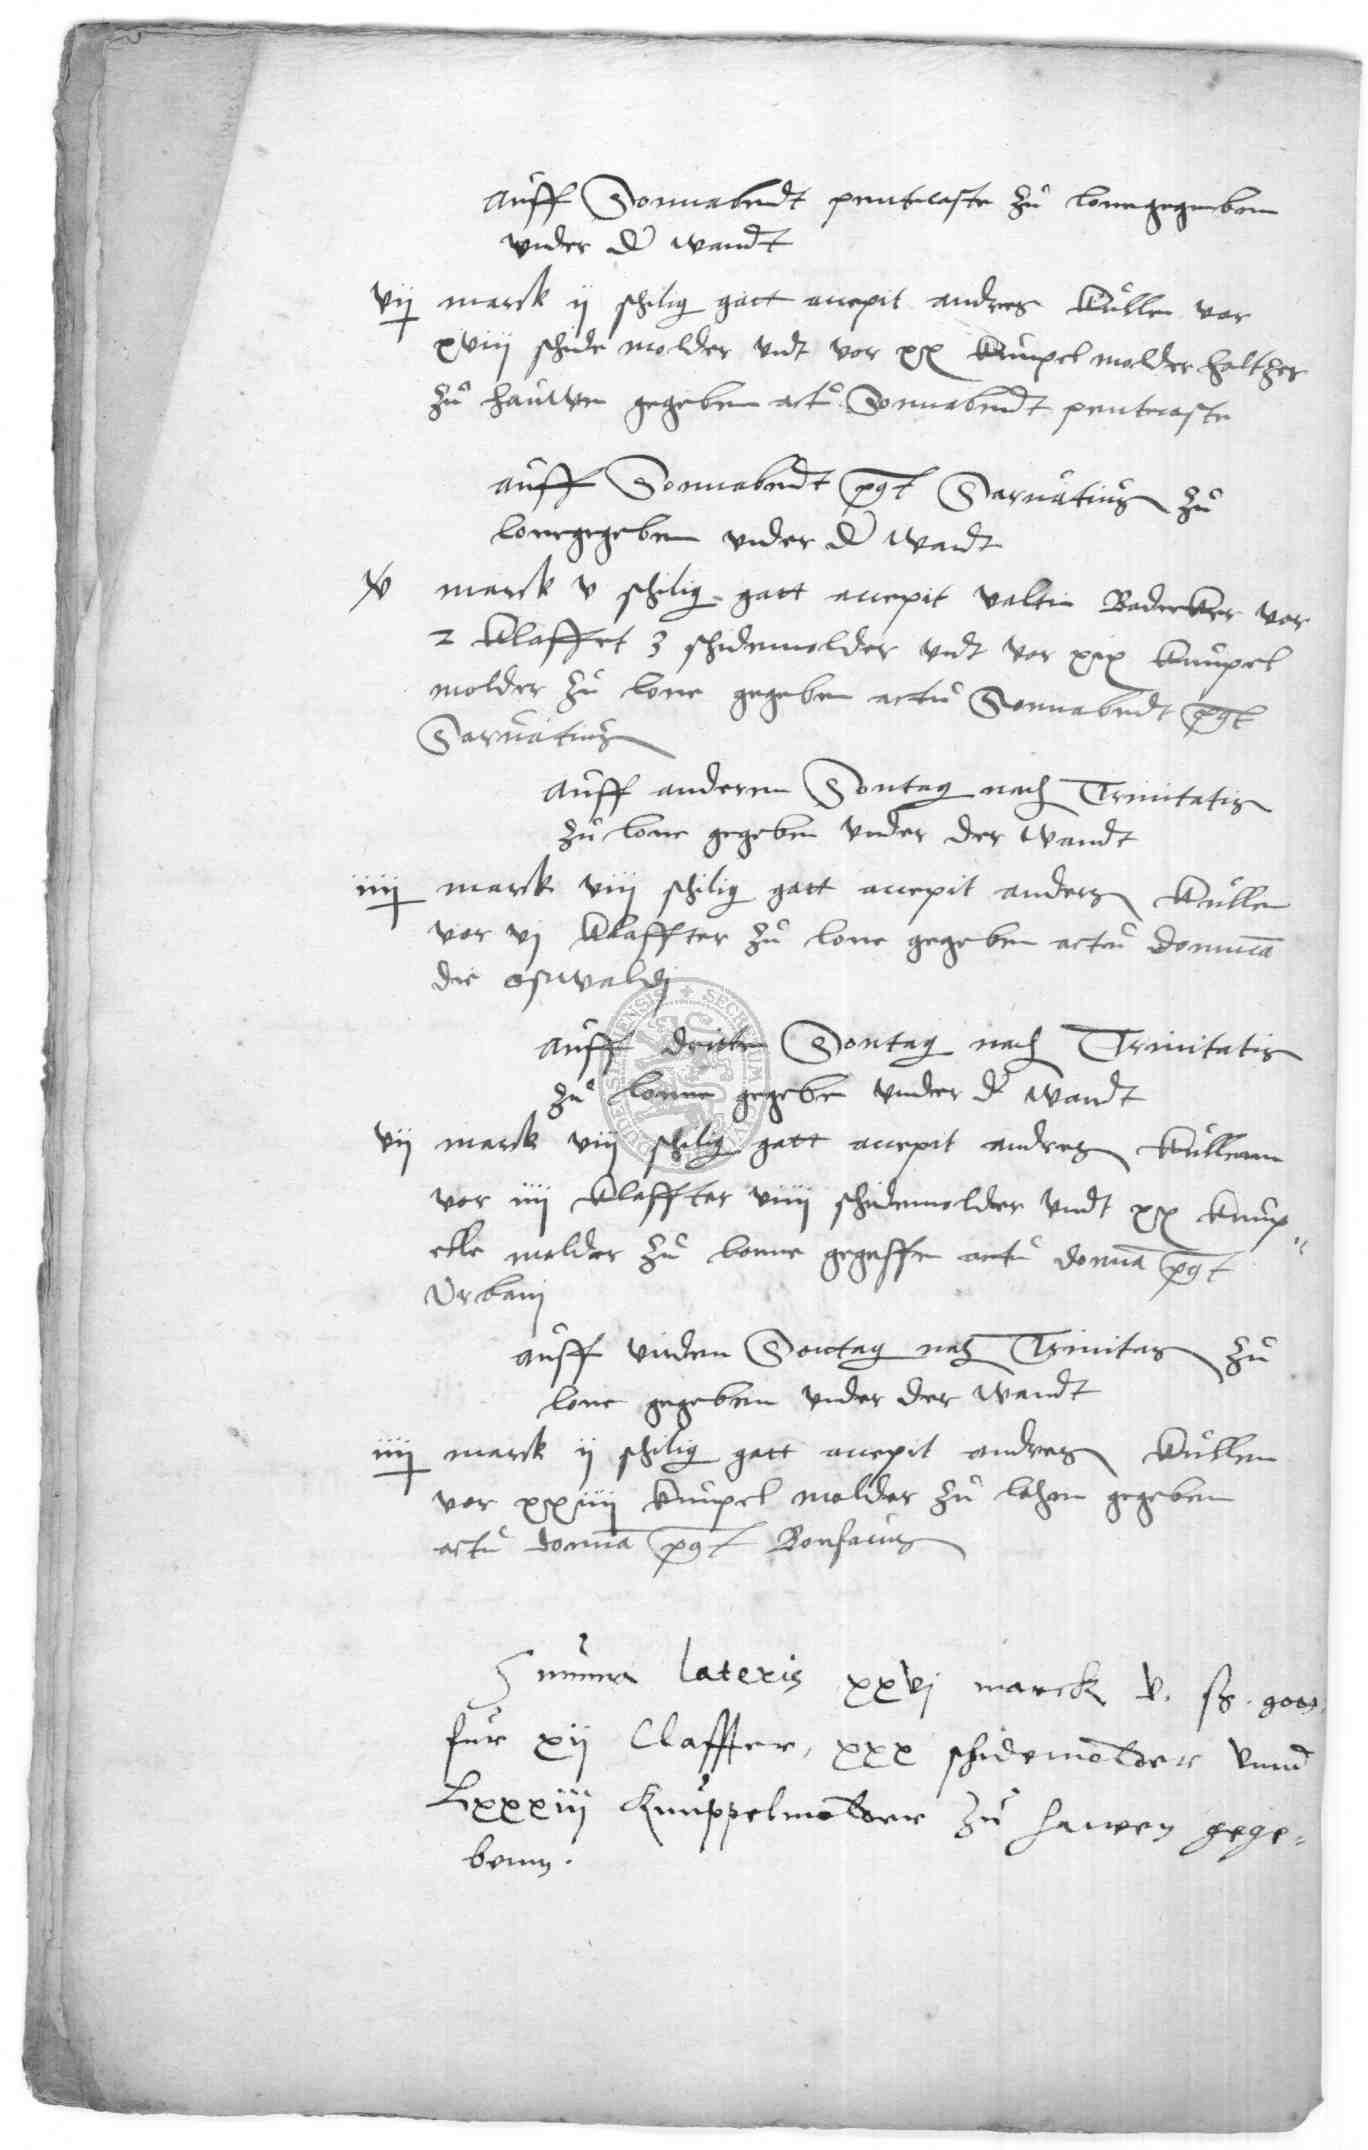 auff Sonnabendt pentecoste zu lonegegeben
vnder d' wandt
vij marck ij schilig gatt accepit andres Kullen vor
xviij schide molder vndt vor xx knupel molder holtzer
zu hauwen gegeben actu Sonnabendt pentecoste
auff Sonnabendt post Saruatius zu
lonegegeben vnder d' wandt
v marck v schilig gatt accepit valtin Badecker vor
2 klaffet 3 schidemolder vndt vor xix knupel
molder zu lone gegeben actu Sonnabendt post
Saruatius
auff anderen Sontag nach Trinitatis
zu lone gegeben vnder der wandt
iiij marck viij schilig gatt accepit anders Kullen
vor vj klaffter zu lone gegeben actu dominica
die oswaldj
auff dritten Sontag nach Trinitatis
zu lonne gegebe vnder d' wandt
vij marck viij schilig gatt accepit andres Kulleann
vor iiij klaffter viiij schidemolder vndt xx knup
elle molder zu lonne gegeffe actu domica post
Vrbanj
auff virden Sontag nach Trinitas zu
lone gegeben vnder der wandt
iiij marck ij schilig gatt accepit andres Kullen
vor xxiiij knupel molder zu lohen gegeben
actu domica post Bonfacius
Summa lateris xxvj marck v. sß. goss.
fur xij Claffter, xxx schidemolder vnnd
Lxxxiij Knuppelmolder zu hawen gege=
benn.
SECRETUM